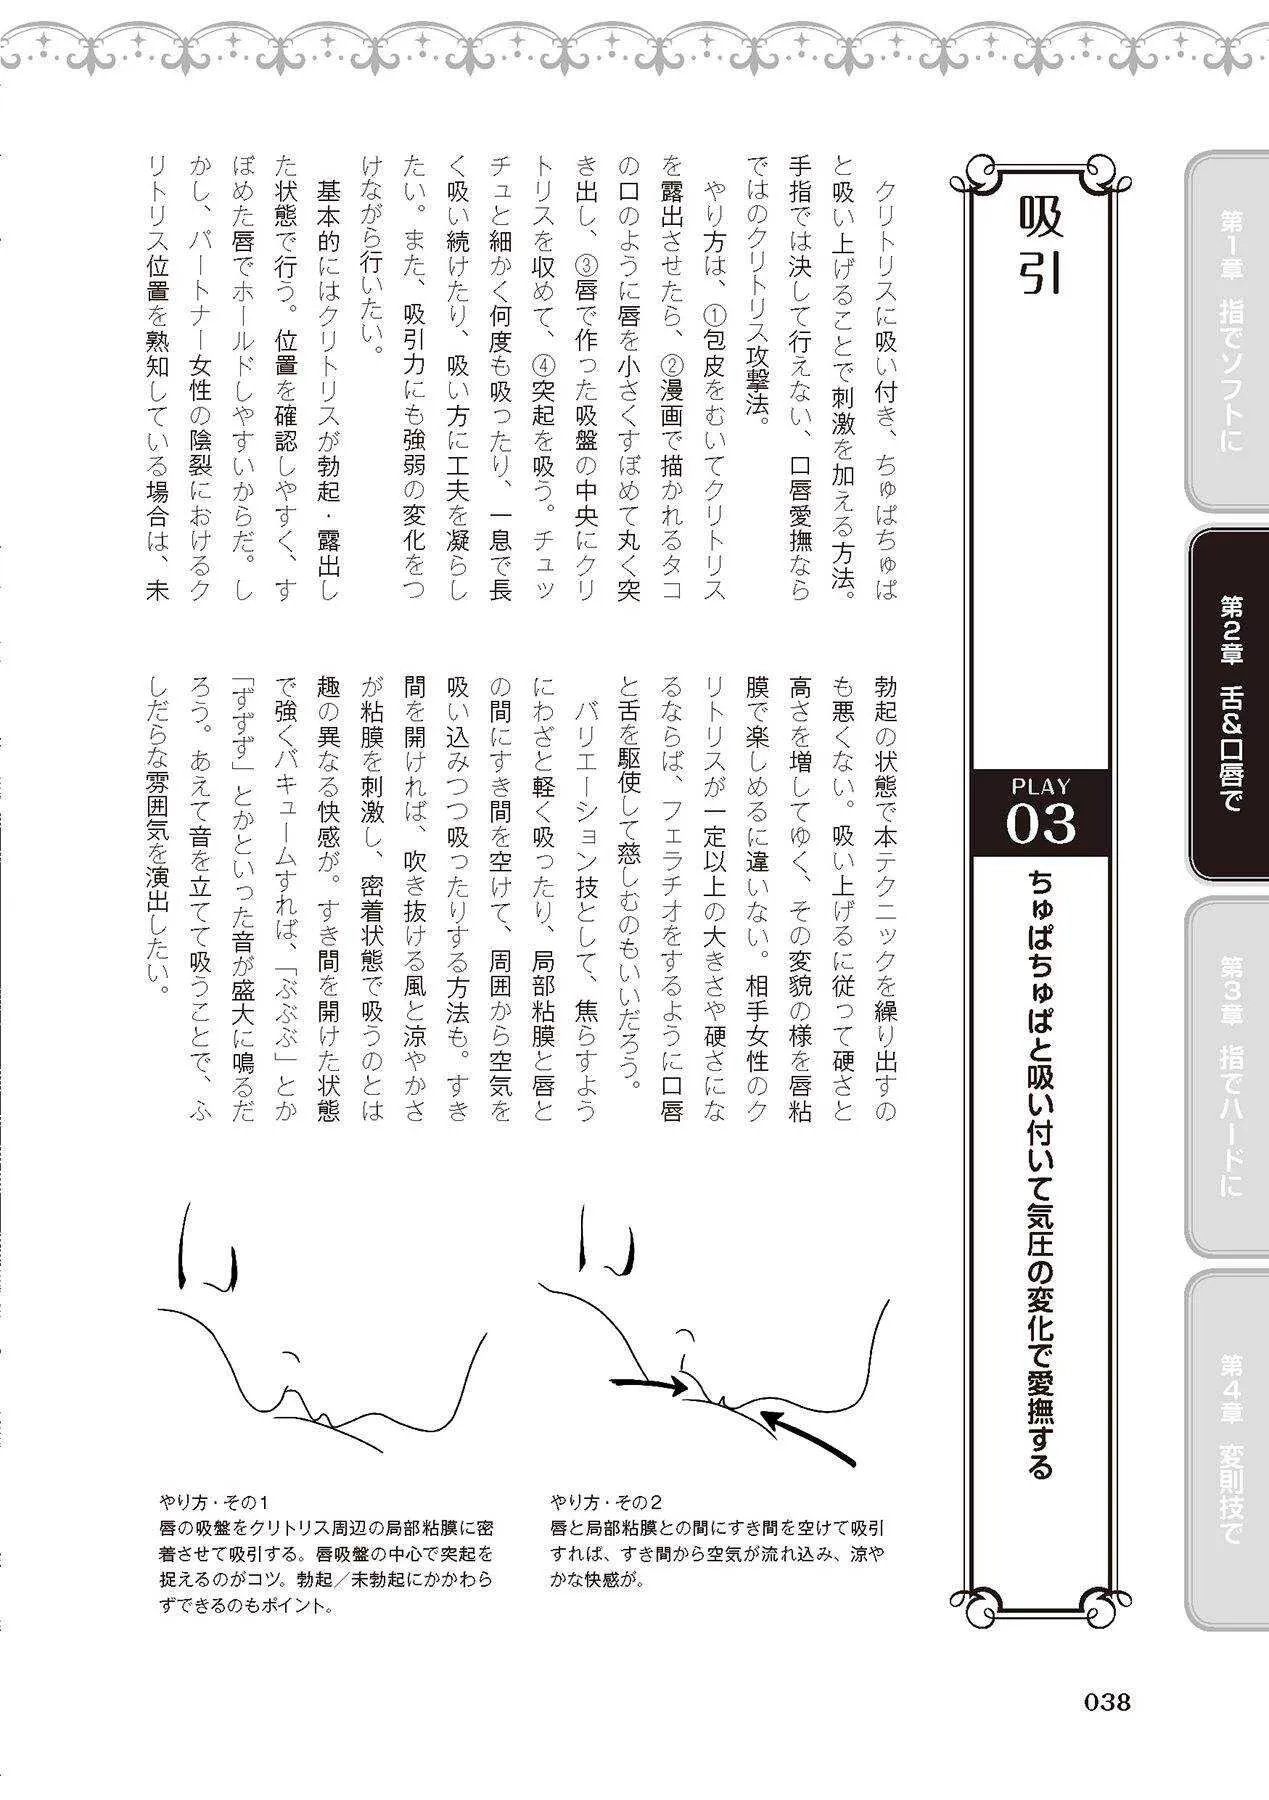 第1章　指でソフトに
第2章　舌&口唇で
第3章　指でハードに
第4章　変則技で
吸引
PLAY
03
ちゅぱちゅぱと吸い付いて気圧の変化で愛撫する
クリトリスに吸い付き、ちゅぱちゅぱ
と吸い上げることで刺激を加える方法。
手指では決して行えない、口唇愛撫なら
ではのクリトリス攻撃法。
やり方は、①包皮をむいてクリトリス
を露出させたら、②漫画で描かれるタコ
の口のように唇を小さくすぼめて丸く突
き出し、③唇で作った吸盤の中央にクリ
トリスを収めて、④突起を吸う。チュッ
チュと細かく何度も吸ったり、一息で長
く吸い続けたり、吸い方に工夫を凝らし
たい。また、吸引力にも強弱の変化をつ
けながら行いたい。
基本的にはクリトリスが勃起・露出し
た状態で行う。位置を確認しやすく、す
ぼめた唇でホールドしやすいからだ。し
かし、パートナー女性の陰裂におけるク
リトリス位置を熟知している場合は、未
勃起の状態で本テクニックを繰り出すの
も悪くない。吸い上げるに従って硬さと
高さを増してゆく、その変貌の様を唇粘
膜で楽しめるに違いない。相手女性のク
リトリスが一定以上の大きさや硬さにな
るならば、フェラチオをするように口唇
と舌を駆使して慈しむのもいいだろう。
バリエーション技として、焦らすよう
にわざと軽く吸ったり、局部粘膜と唇と
の間にすき間を空けて、周囲から空気を
吸い込みつつ吸ったりする方法も。すき
間を開ければ、吹き抜ける風と涼やかさ
が粘膜を刺激し、密着状態で吸うのとは
趣の異なる快感が。すき間を開けた状態
で強くバキュームすれば、「ぶぶぶ」とか
「ずずず」とかといった音が盛大に鳴るだ
ろう。あえて音を立てて吸うことで、ふ
しだらな雰囲気を演出したい。
やり方・その1
唇の吸盤をクリトリス周辺の局部粘膜に密
着させて吸引する。唇吸盤の中心で突起を
捉えるのがコツ。勃起／未勃起にかかわら
ずできるのもポイント。
やり方・その2
唇と局部粘膜との間にすき間を空けて吸引
すれば、すき間から空気が流れ込み、涼や
かな快感が。
038